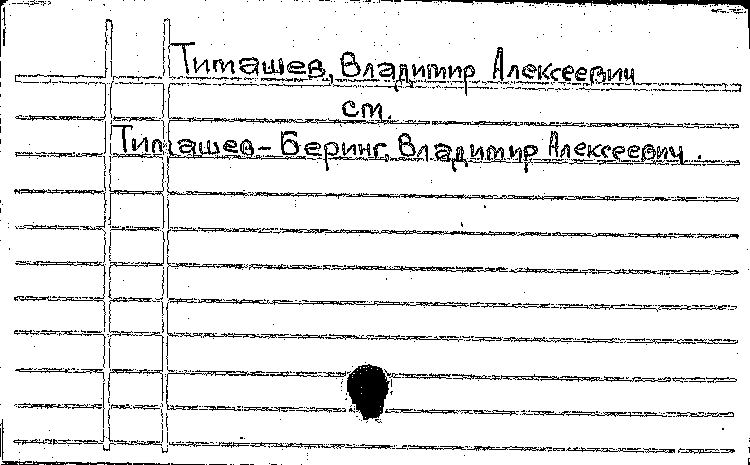 Тимашев, Владимир Алексеевич
см.
Тимашев-Беринг, Владимир Алексеевич.